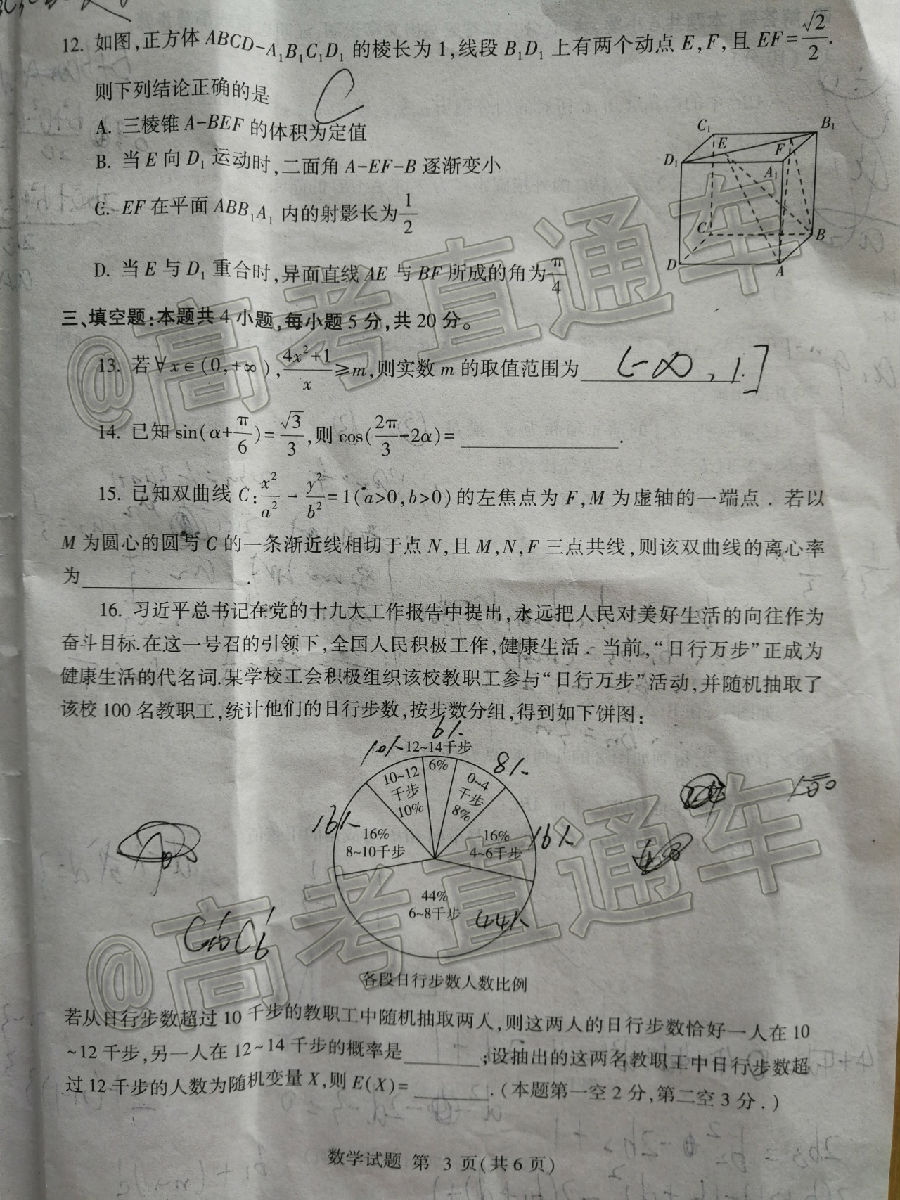 12. 如图,正方体 ABCD-A₁B₁C₁D₁ 的棱长为 1,线段 B₁D₁ 上有两个动点 E,F,且 EF=√2/2.
则下列结论正确的是
C
A. 三棱锥 A-BEF 的体积为定值
B. 当 E 向 D₁ 运动时,二面角 A-EF-B 逐渐变小
C. EF 在平面 ABB₁A₁ 内的射影长为 1/2
D. 当 E 与 D₁ 重合时,异面直线 AE 与 BF 所成的角为 π/4
C₁ B₁
E F
D₁ A₁
C B
D A
三、填空题:本题共 4 小题,每小题 5 分,共 20 分。
13. 若∀x∈(0,+∞), (4x²+1)/x ≥m,则实数 m 的取值范围为 (-∞,1.]
14. 已知 sin(α+π/6)=√3/3,则 cos(2π/3-2α)=________.
15. 已知双曲线 C: x²/a² - y²/b²=1(a>0,b>0)的左焦点为 F,M 为虚轴的一端点．若以
M 为圆心的圆与 C 的一条渐近线相切于点 N,且 M,N,F 三点共线,则该双曲线的离心率
为________.
16. 习近平总书记在党的十九大工作报告中提出,永远把人民对美好生活的向往作为
奋斗目标.在这一号召的引领下,全国人民积极工作,健康生活．当前,“日行万步”正成为
健康生活的代名词.某学校工会积极组织该校教职工参与“日行万步”活动,并随机抽取了
该校 100 名教职工,统计他们的日行步数,按步数分组,得到如下饼图:
6%
10% 12~14千步 8%
6%
10~12千步 10%
0~4千步 8%
16%
16% 8~10千步
16% 4~6千步
16%
44% 6~8千步
44%
100
各段日行步数人数比例
若从日行步数超过 10 千步的教职工中随机抽取两人,则这两人的日行步数恰好一人在 10
~12 千步,另一人在 12~14 千步的概率是________;设抽出的这两名教职工中日行步数超
过 12 千步的人数为随机变量 X,则 E(X)=________.(本题第一空 2 分,第二空 3 分.)
数学试题 第 3 页(共 6 页)
@高考直通车
@高考直通车